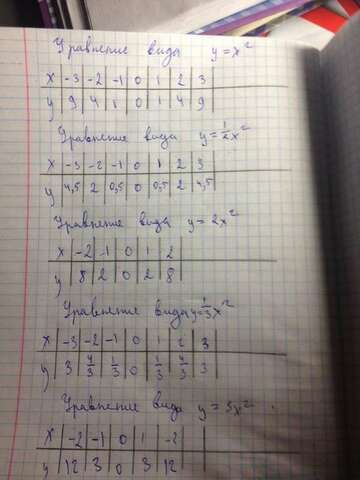 Уравнение вида y=x²
x -3 -2 -1 0 1 2 3
y 9 4 1 0 1 4 9
Уравнение вида y=1/2x²
x -3 -2 -1 0 1 2 3
y 4,5 2 0,5 0 0,5 2 4,5
Уравнение вида y=2x²
x -2 -1 0 1 2
y 8 2 0 2 8
Уравнение вида y=1/3x²
x -3 -2 -1 0 1 2 3
y 3 4/3 1/3 0 1/3 4/3 3
Уравнение вида y=3x²
x -2 -1 0 1 -2
y 12 3 0 3 12